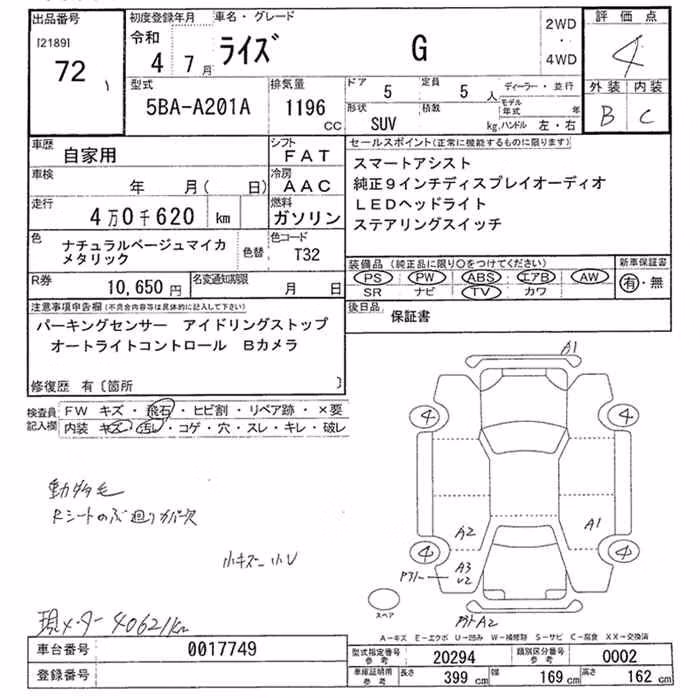 出品番号 初度登録年月 車名・グレード 2WD 評価点
[2189] 令和 ライズ G ・ 4
72 4年 7月 4WD 外装 内装
型式 排気量 ドア 5 定員 5人 ディーラー・並行 B C
5BA-A201A 1196cc 形状 SUV 積載 kg モデル年式 年 ハンドル 左・右
車歴 自家用 シフト FAT セールスポイント(正常に機能するものに限ります)
車検 年 月( 日) 冷房 AAC スマートアシスト
走行 4万0千620 km 燃料 ガソリン 純正9インチディスプレイオーディオ
LEDヘッドライト
ステアリングスイッチ
色 ナチュラルベージュマイカメタリック 色替 色コード T32
装備品(純正品に限り〇をつけてください) 新車保証書
R券 10,650円 名変通知期限 月 日 PS PW ABS エアB AW 有・無
SR ナビ TV カワ
注意事項申告欄(不具合内容等は具体的に記入して下さい) 後日品 保証書
パーキングセンサー アイドリングストップ
オートライトコントロール Bカメラ
修復歴 有〔箇所 〕
検査員記入欄 FW キズ・飛石・ヒビ割・リペア跡・×要
内装 キズ・汚レ・コゲ・穴・スレ・キレ・破レ
A1
4 4
動物毛
A2 A1
小キズ 小U
4 4
A3
U2
スペア
A2
現メーター40621km
A-キズ E-エクボ U-凹み W-補修跡 S-サビ C-腐食 XX-交換済
車台番号 0017749 型式指定番号 参考 20294 類別区分番号 参考 0002
登録番号 車庫証明用 参考 長さ 399cm 幅 169cm 高さ 162cm